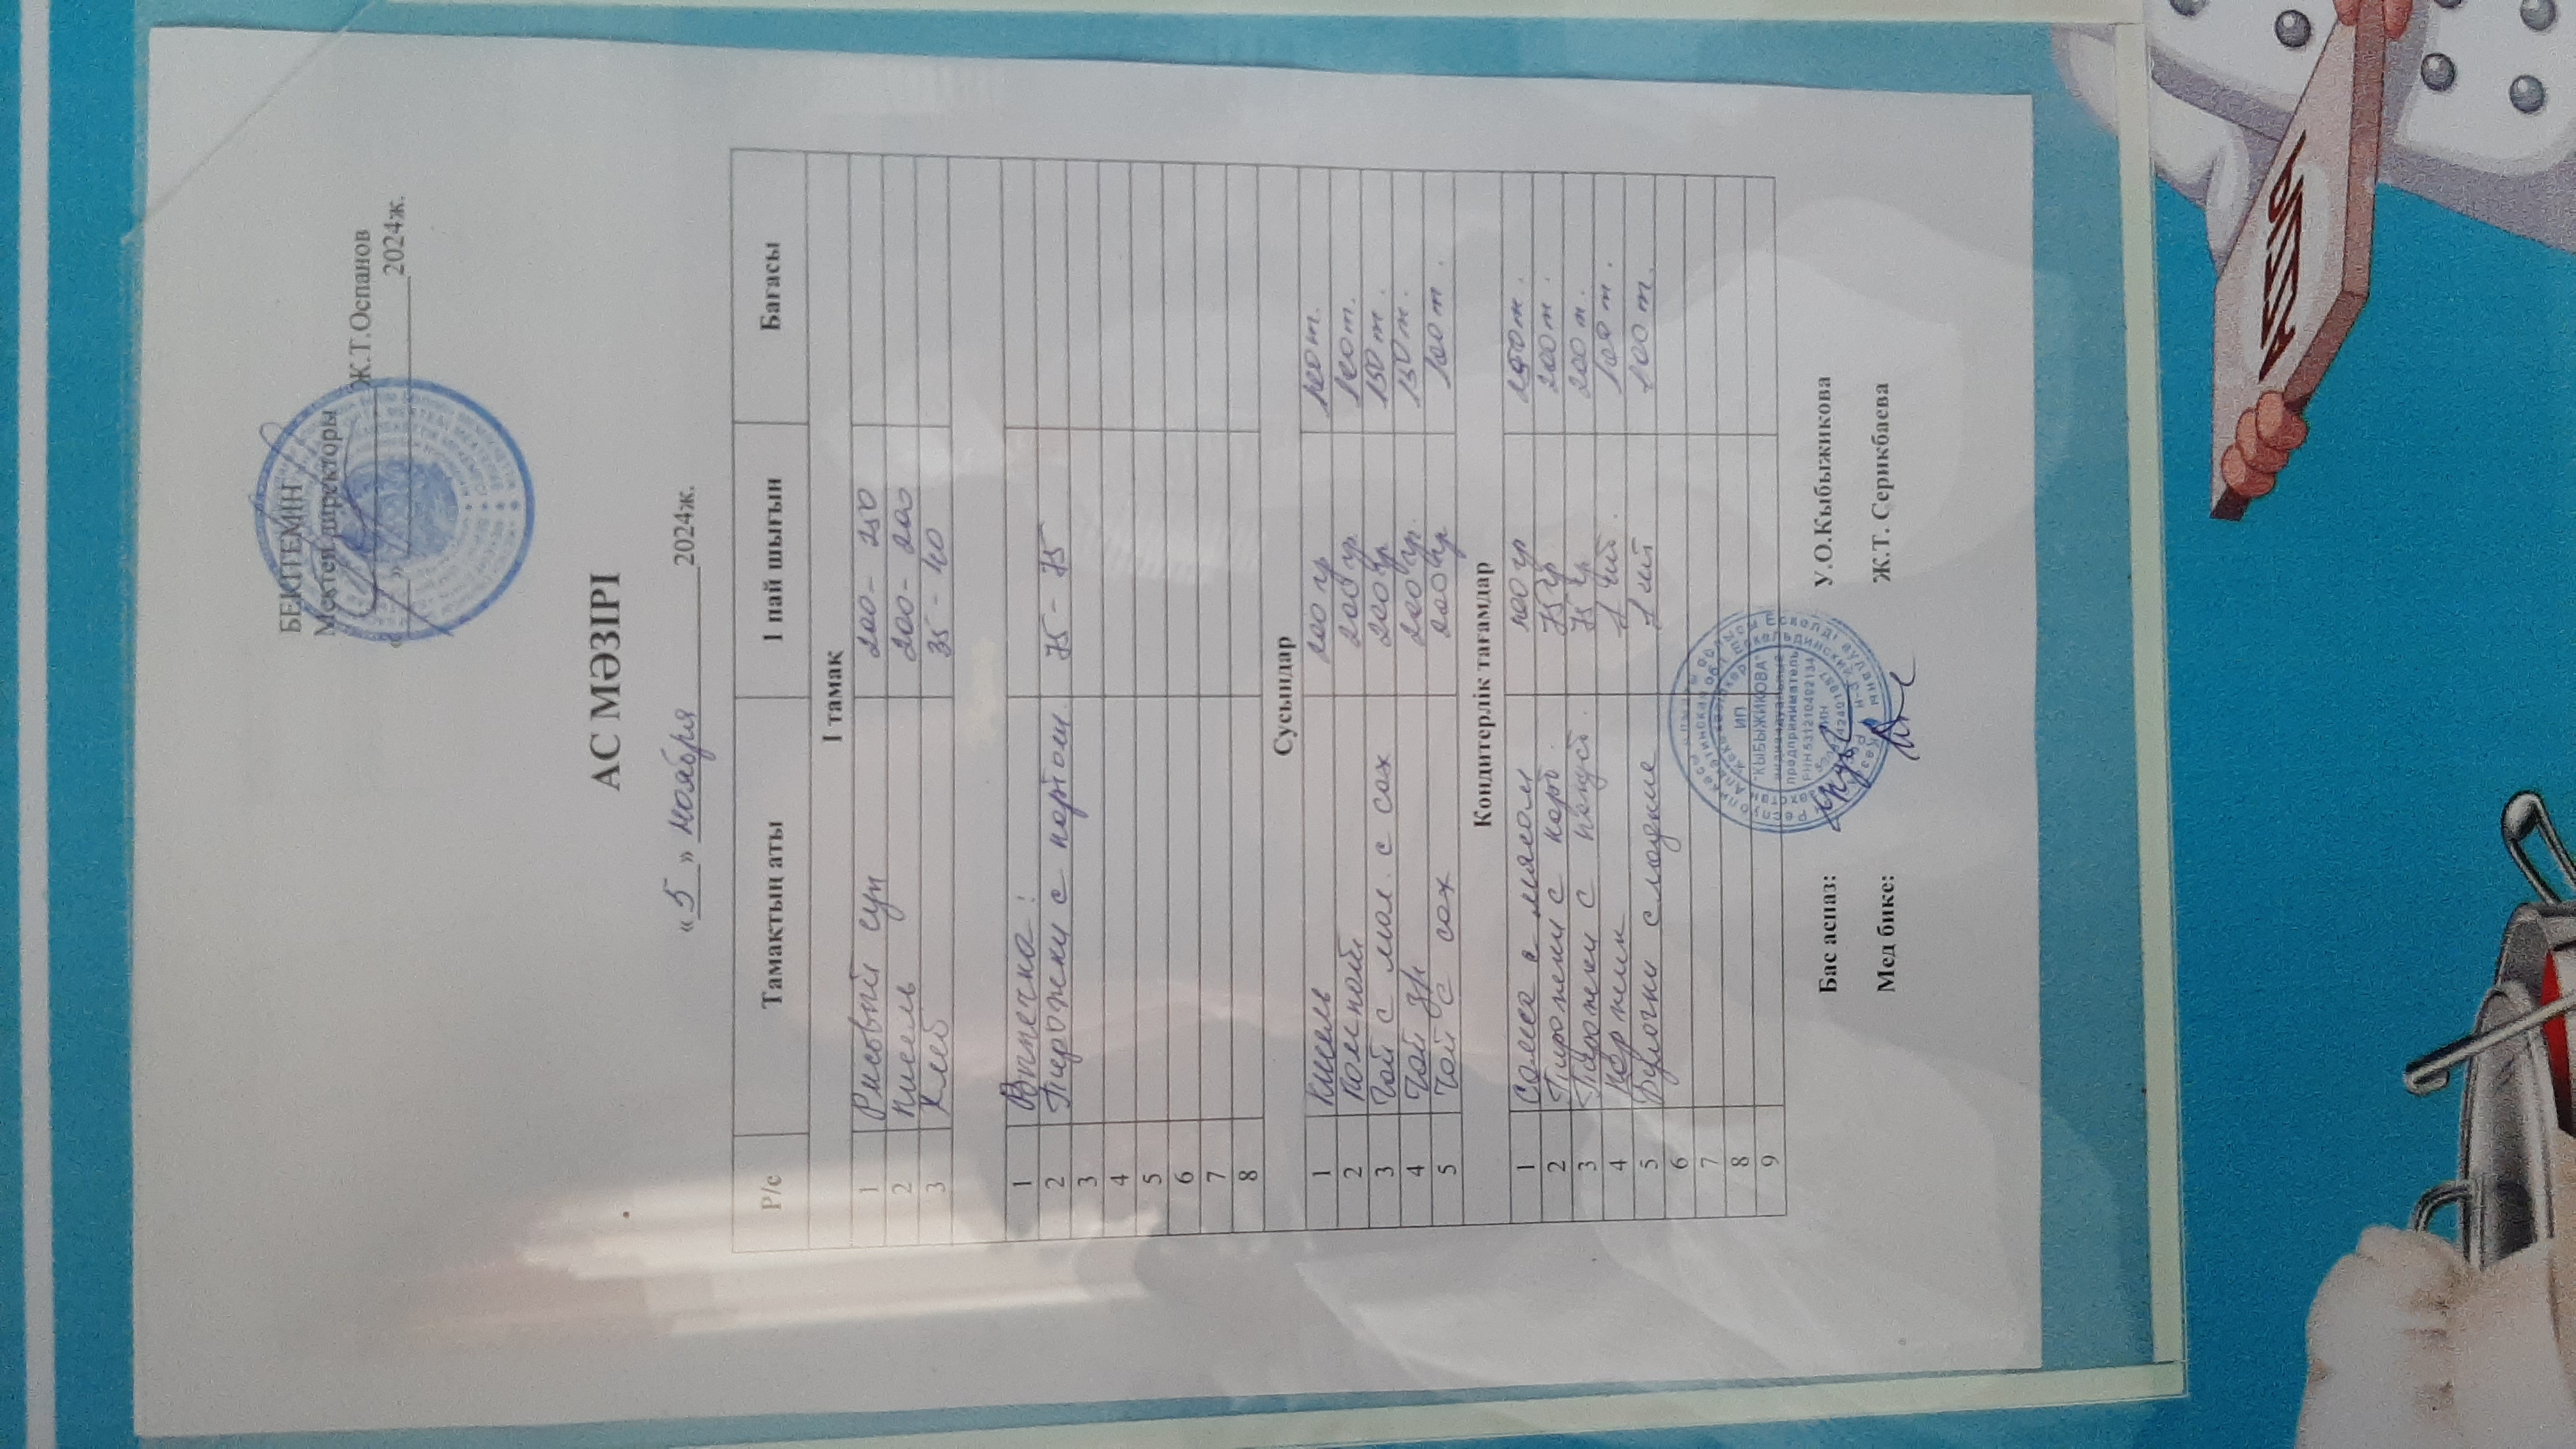 БЕКІТЕМІН
Мектеп директоры
Ж.Т.Оспанов
«____» ____________________2024ж.
АС МӘЗІРІ
«5» ноября 2024ж.
Р/с Тамақтың аты 1 пай шығын Бағасы
І тамақ
1 Рисовый суп 200- 250
2 Кисель 200- 200
3 Хлеб 35 - 40
1 Выпечка:
2 Пирожки с картош. 75- 75
3
4
5
6
7
8
Сусындар
1 Кисель 200 гр 100 т.
2 Компот 200 гр. 100 т.
3 Чай с мол. с сах 200 гр 150 т.
4 Чай 200 гр. 150 т.
5 Чай с сах 200 гр 100 т.
Кондитерлік тағамдар
1 Самса с мясом 100 гр т.
2 Пирожки с карт. 75 гр 200 т.
3 Пирожки с капуст. 75 гр 200 т.
4 Коржик 1 шт. 100 т.
5 Булочки сладкие 1 шт 100 т.
6
7
8
9
ИП
"КЫБЫЖИКОВА"
индивидуальный
предприниматель
РНН 531210402134
Бас аспаз: У.О.Кыбыжикова
Мед бике: Ж.Т. Серикбаева